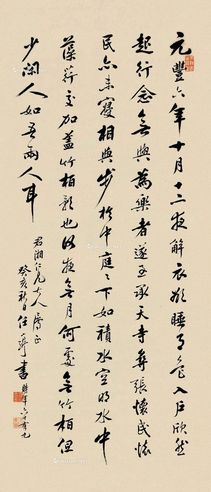 元豐六年十月十二夜解衣欲睡月色入戶欣然
起行念無與為樂者遂至承天寺尋張懷民懷
民亦未寢相與步於中庭〻下如積水空明水中
藻荇交加蓋竹柏影也何夜無月何處無竹柏但
少閑人如吾兩人耳
君湘仁兄大人屬正
癸亥秋日任書時年六十有九